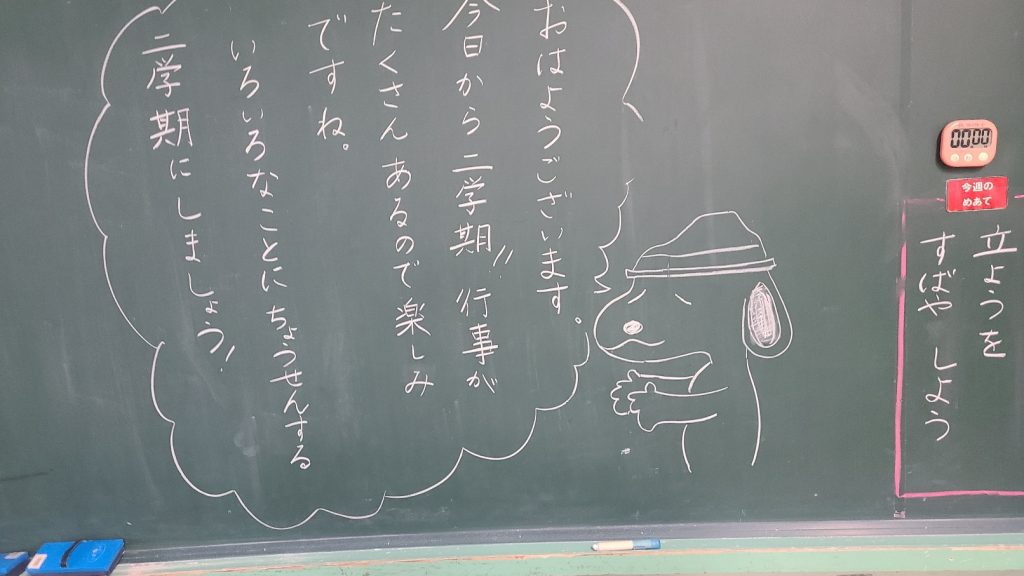 おはようございます。
今日から二学期!! 行事が
たくさんあるので楽しみ
ですね。
いろいろなことにちょうせんする
二学期にしましょう!
00:00
今週の
めあて
立ようを
すばやしよう